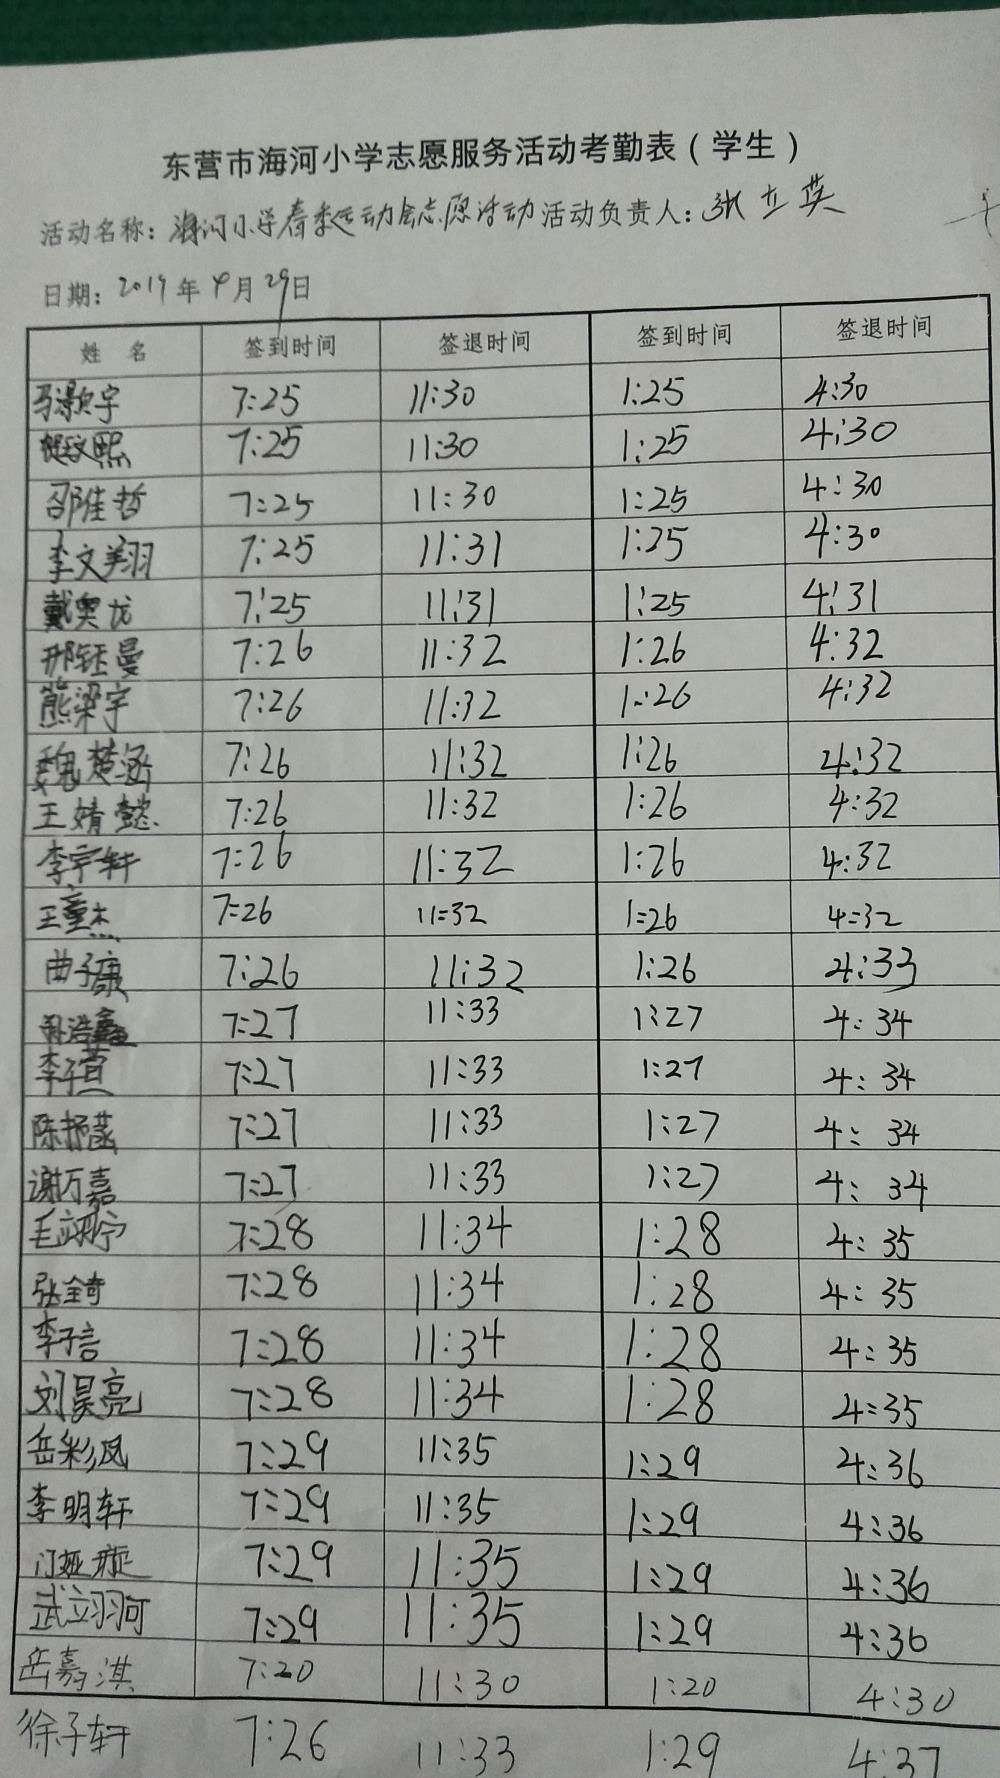 东营市海河小学志愿服务活动考勤表（学生）
活动名称：海河小学春季运动会志愿活动 活动负责人：张立英
日期：2019年4月29日
姓 名 签到时间 签退时间 签到时间 签退时间
马灏宇 7:25 11:30 1:25 4:30
7:25 11:30 1:25 4:30
邵佳哲 7:25 11:30 1:25 4:30
李文翔 7:25 11:31 1:25 4:30
戴奥龙 7:25 11:31 1:25 4:31
邢钰曼 7:26 11:32 1:26 4:32
熊梁宇 7:26 11:32 1:26 4:32
魏楚涵 7:26 11:32 1:26 4:32
王婧懿 7:26 11:32 1:26 4:32
李宇轩 7:26 11:32 1:26 4:32
王童杰 7:26 11:32 1:26 4:32
曲子康 7:26 11:32 1:26 4:33
孙浩鑫 7:27 11:33 1:27 4:34
李子萱 7:27 11:33 1:27 4:34
陈抒菡 7:27 11:33 1:27 4:34
谢万嘉 7:27 11:33 1:27 4:34
毛翊宁 7:28 11:34 1:28 4:35
张 7:28 11:34 1:28 4:35
李子言 7:28 11:34 1:28 4:35
刘昊亮 7:28 11:34 1:28 4:35
岳彩凤 7:29 11:35 1:29 4:36
李明轩 7:29 11:35 1:29 4:36
门娅璇 7:29 11:35 1:29 4:36
武立羽河 7:29 11:35 1:29 4:36
岳嘉淇 7:20 11:30 1:20 4:30
徐子轩 7:26 11:33 1:29 4:37